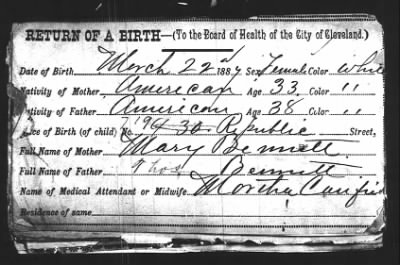 RETURN OF A BIRTH—(To the Board of Health of the City of Cleveland.)
Date of Birth, March 22nd 1887 Sex Female Color White
Nativity of Mother American Age 33 Color ''
Nativity of Father American Age 38 Color ''
Place of Birth (of child) No. Republic Street,
Full Name of Mother Mary Bennett
Full Name of Father Thos Bennett
Name of Medical Attendant or Midwife, Martha
Residence of same